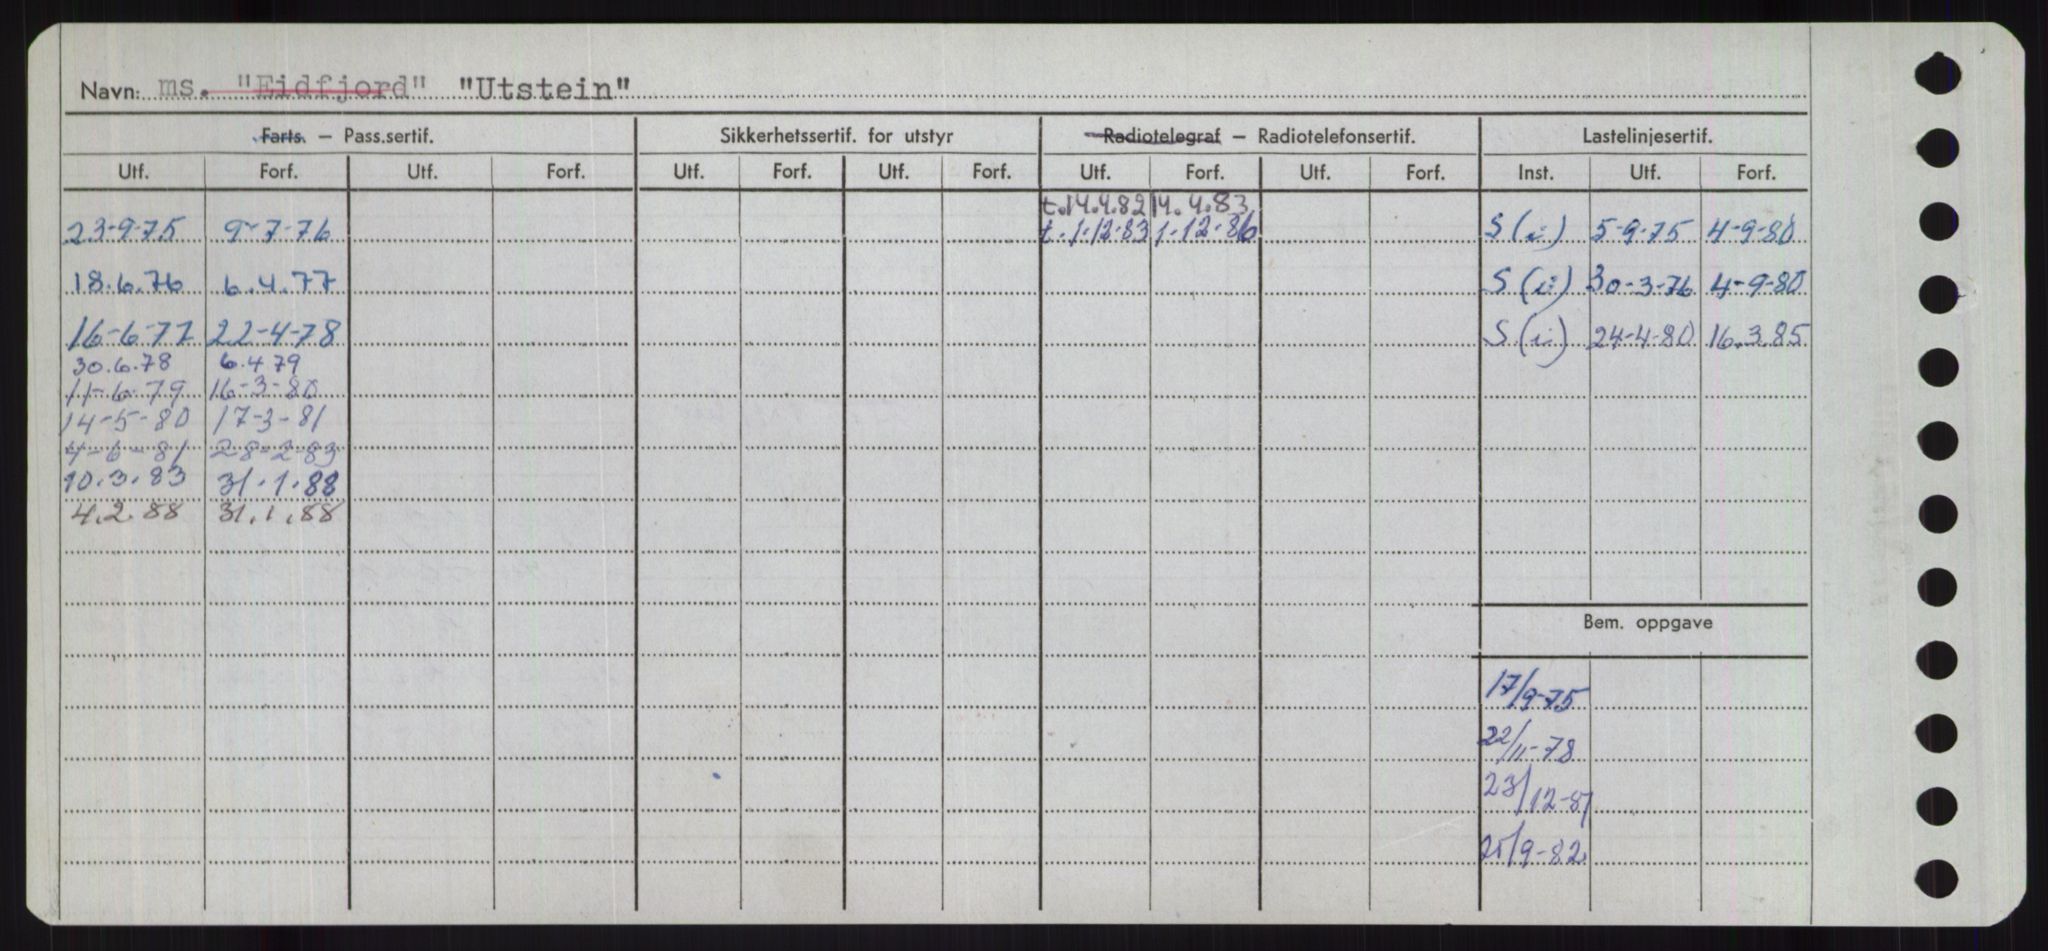 Navn: ms. "Eidfjord" "Utstein"
Farts. – Pass.sertif. Sikkerhetssertif. for utstyr Radiotelegraf – Radiotelefonsertif. Lastelinjesertif.
Utf. Forf. Utf. Forf. Utf. Forf. Utf. Forf. Utf. Forf. Utf. Forf. Inst. Utf. Forf.
t.14.4.82 14.4.83
23-9-75 9-7-76 t.1.12.83 1.12.86 S (i) 5-9-75 4-9-80
18.6.76 6.4.77 S (i) 30-3-76 4-9-80
16-6-77 22-4-78 S (i) 24-4-80 16.3.85
30.6.78 6.4 79
11-6-79 16-3-80
14-5-80 17-3-81
4-6-81 28-2-83
10.3.83 31.1.88
4.2.88 31.1.88
Bem. oppgave
17/9-75
22/11-78
23/12-81
25/9-82